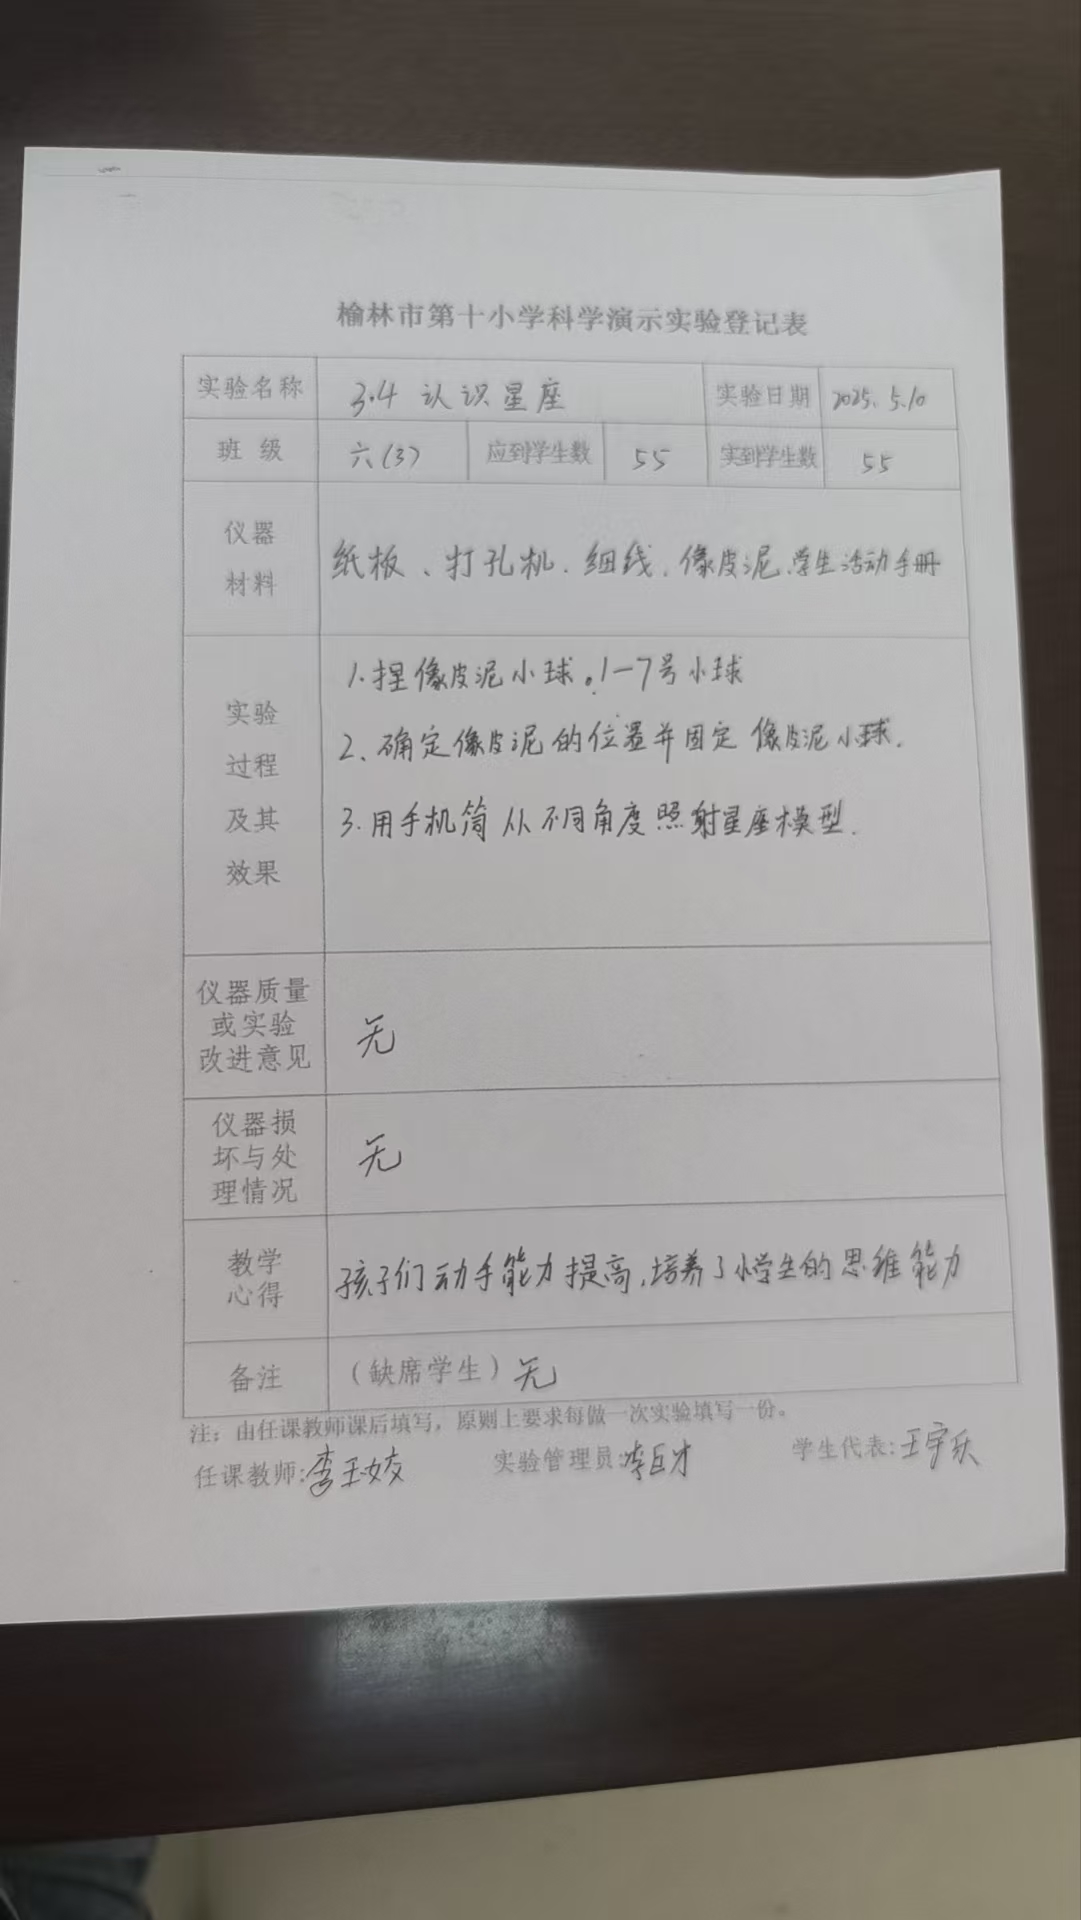 榆林市第十小学科学演示实验登记表
实验名称 3.4 认识星座 实验日期 2025.5.10
班 级 六(3) 应到学生数 55 实到学生数 55
仪器
材料
纸板、打孔机.细线.像皮泥.学生活动手册
实验
过程
及其
效果
1.捏像皮泥小球。1-7号小球
2、确定像皮泥的位置并固定 像皮泥小球.
3.用手机筒从不同角度照射星座模型.
仪器质量
或实验
改进意见
无
仪器损
坏与处
理情况
无
教学
心得
孩子们动手能力提高,培养了小学生的思维能力
备注 (缺席学生)无
注:由任课教师课后填写,原则上要求每做一次实验填写一份。
任课教师:李玉姣 实验管理员:李巨才 学生代表:王宇